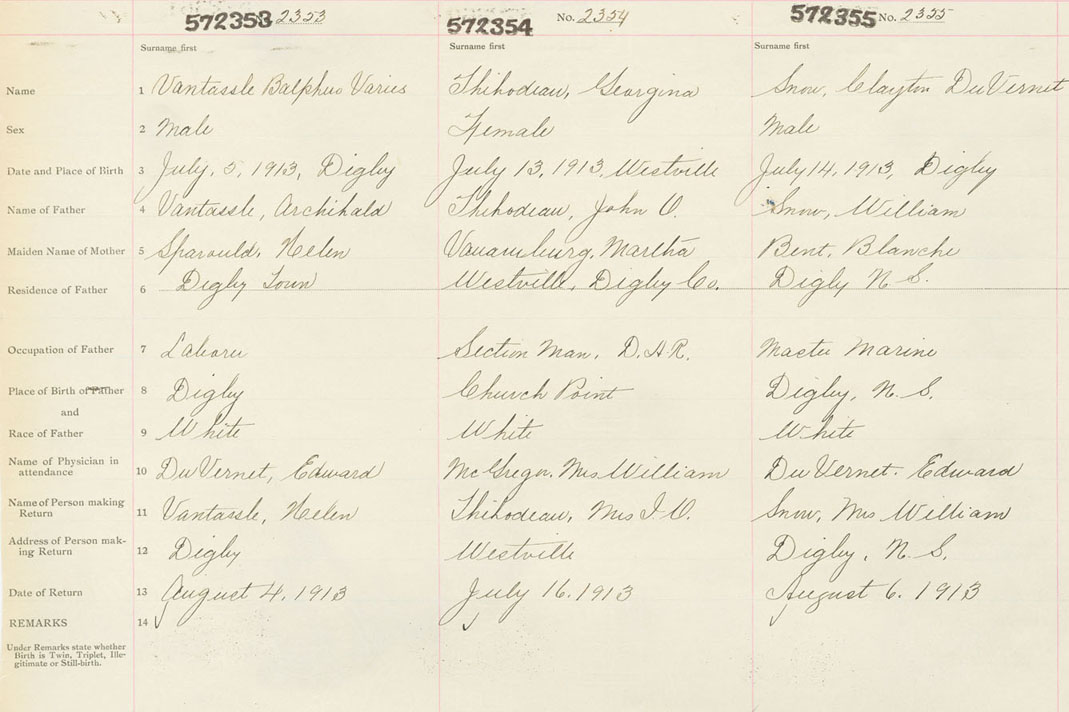 572353 2353 572354 No. 2354 572355 No. 2355
Surname first Surname first Surname first
Name 1 Vantassle Balphus Varies Thibodeau, Georgina Snow, Clayton DuVernet
Sex 2 Male Female Male
Date and Place of Birth 3 July, 5, 1913, Digby July 13, 1913, Westville July 14, 1913, Digby
Name of Father 4 Vantassle, Archibald Thibodeau, John O. Snow, William
Maiden Name of Mother 5 Helen Martha Bent, Blanche
Residence of Father 6 Digby Town Westville, Digby Co. Digby N. S.
Occupation of Father 7 Laborer Section Man, D.A.R. Master Marine
Place of Birth of Father 8 Digby Church Point Digby, N. S.
and
Race of Father 9 White White White
Name of Physician in
attendance 10 DuVernet, Edward McGregor, Mrs William DuVernet. Edward
Name of Person making
Return 11 Vantassle, Helen Thibodeau, Mrs J. O. Snow, Mrs William
Address of Person mak-
ing Return 12 Digby Westville Digby, N. S.
Date of Return 13 August 4, 1913 July 16, 1913 August 6. 1913
REMARKS 14
Under Remarks state whether
Birth is Twin, Triplet, Ille-
gitimate or Still-birth.